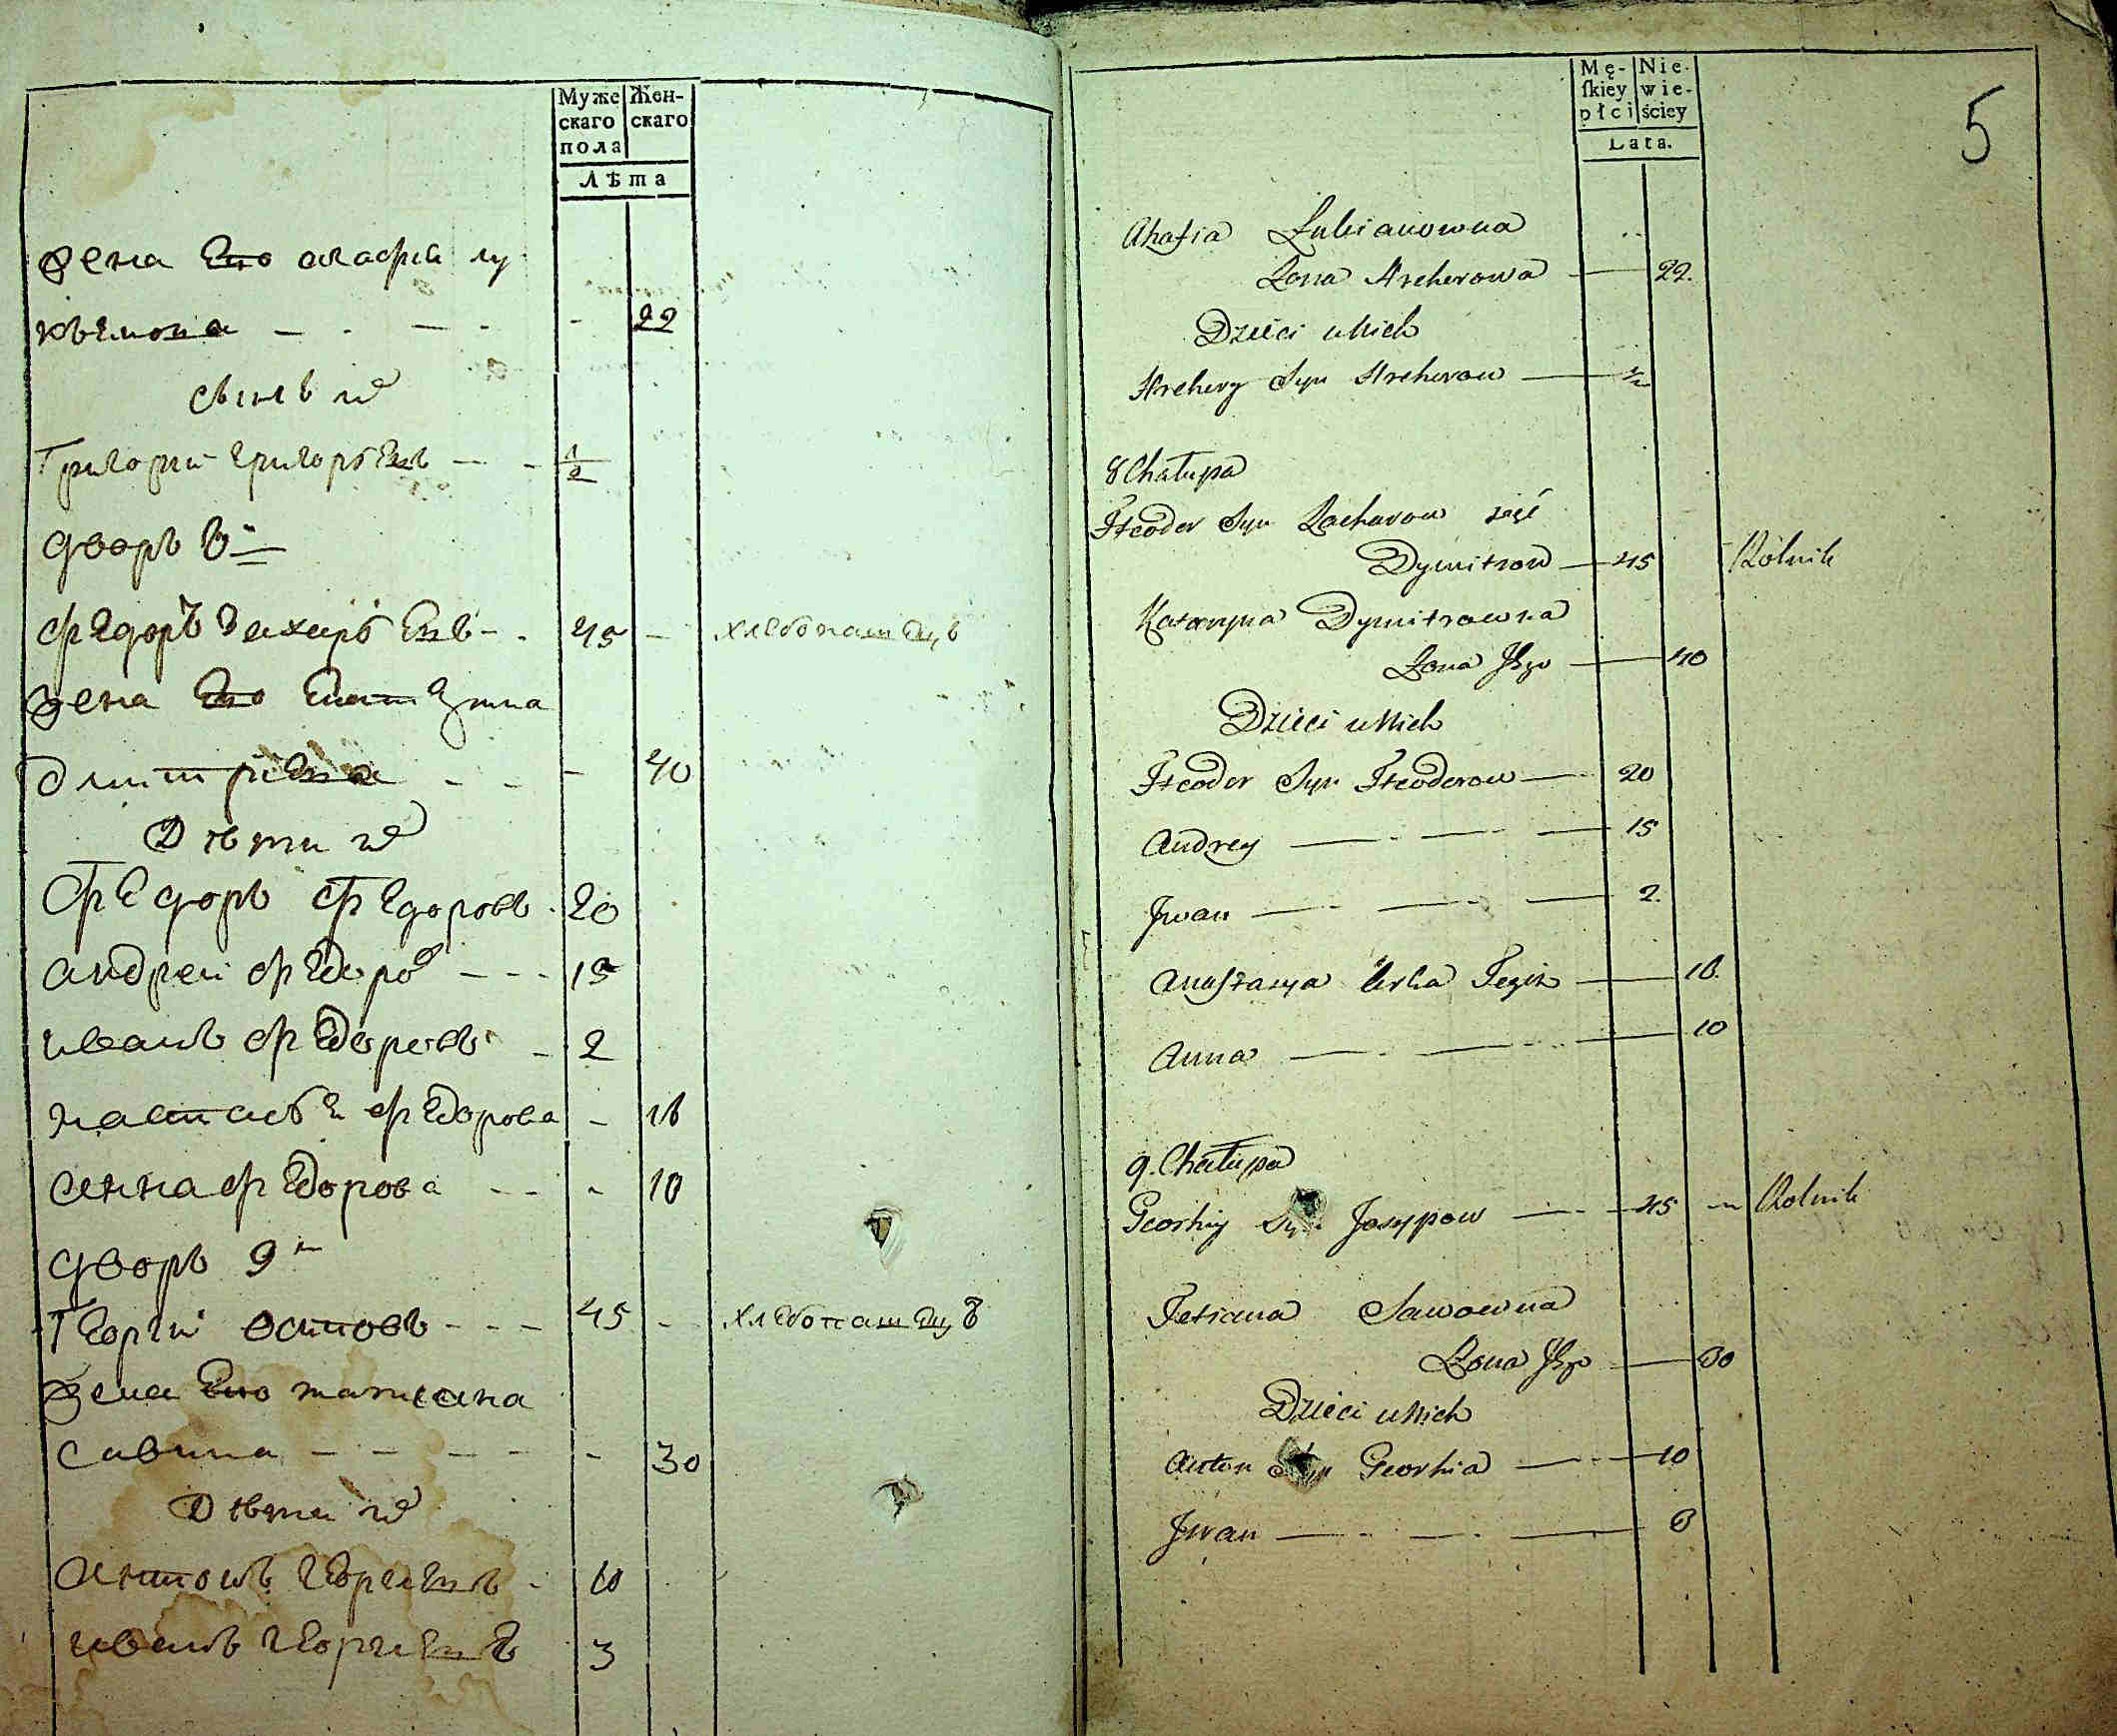 Муже Жен-
скаго скаго
пола
Лѣта
жена ево агафия лу
кьянова - - - - - 22
сынъ их
Григорий григорьевъ - - 1/2
дворъ 8й
Федоръ захарьевъ - - 45 - хлебопашецъ
жена ево екатерина
дмитриева - - - 40
Дѣти их
Федоръ Федоровъ - 20
андрей федоров - - - 15
иванъ федоровъ - 2
настасья федорова - 16
анна федорова - - - 10
дворъ 9й
Георгий осиповъ - - - 45 - хлебопашецъ
жена ево татиана
савина - - - - - 30
Дѣти их
антонъ георгиевъ - 10
иванъ георгиевъ 3
5
Mę- Nie-
skiey wie-
płci ściey
Lata.
Ahafia Łukianowna
Żona Hrehorowa — 22.
Dzieci u Nich
Hrehory Syn Hrehorow — 1/2
8 Chałupa
Fteodor Syn Zacharow zięć
Dymitrow — 45 Rolnik
Katarzyna Dymitrowna
Żona Jego — 40
Dzieci u Nich
Fteodor Syn Fteodorow — 20
Andrey — — — 15
Jwan — — — 2.
Anastazya Curka Tegoż — 16.
Anna — — — 10
9. Chałupa
Georhiy Syn Josypow — 45 — Rolnik
Tetiana Sawowna
Żona Jego — 30
Dzieci u Nich
Anton Syn Georhia — 10
Jwan — — — 3